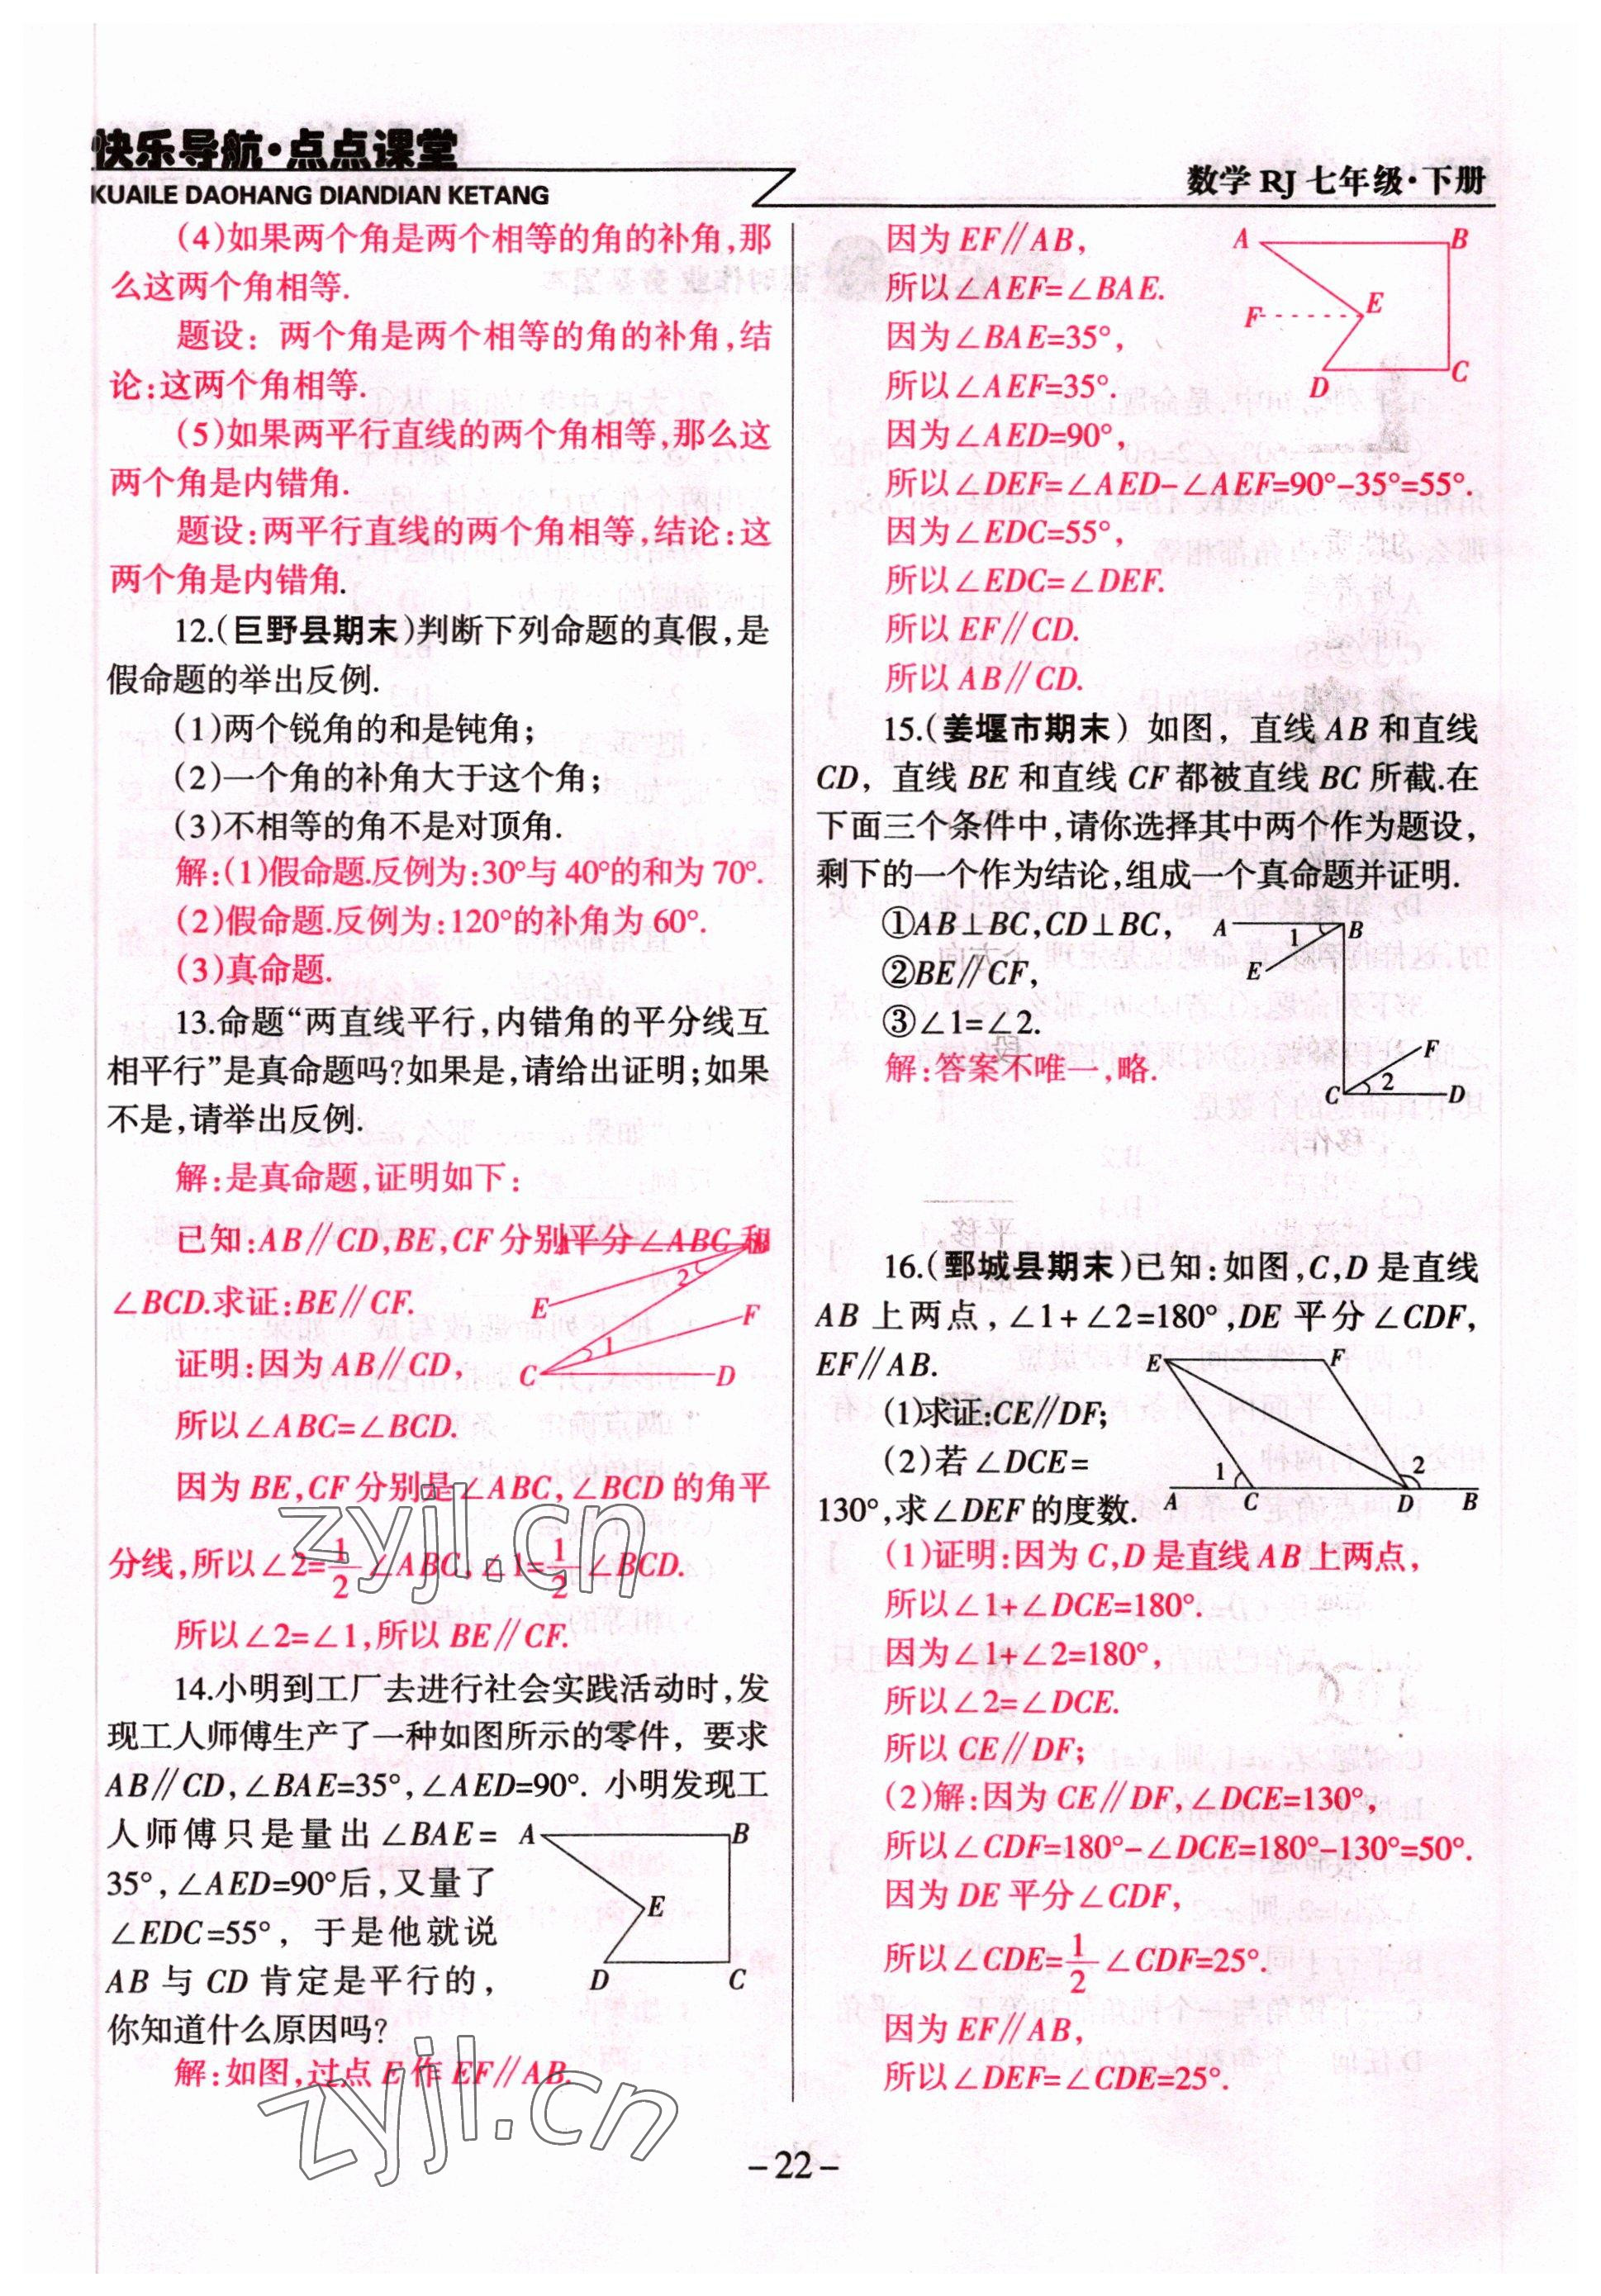 快乐导航·点点课堂
KUAILE DAOHANG DIANDIAN KETANG
数学 RJ 七年级·下册
(4)如果两个角是两个相等的角的补角,那
么这两个角相等.
题设：两个角是两个相等的角的补角,结
论:这两个角相等.
(5)如果两平行直线的两个角相等,那么这
两个角是内错角.
题设:两平行直线的两个角相等,结论:这
两个角是内错角.
12.(巨野县期末)判断下列命题的真假,是
假命题的举出反例.
(1)两个锐角的和是钝角;
(2)一个角的补角大于这个角;
(3)不相等的角不是对顶角.
解:(1)假命题.反例为:30°与40°的和为70°.
(2)假命题.反例为:120°的补角为60°.
(3)真命题.
13.命题“两直线平行,内错角的平分线互
相平行”是真命题吗?如果是,请给出证明;如果
不是,请举出反例.
解:是真命题,证明如下:
已知:AB∥CD,BE,CF分别平分∠ABC和
∠BCD.求证:BE∥CF.
证明:因为AB∥CD,
E
2
F
1
C
D
所以∠ABC=∠BCD.
因为BE,CF分别是∠ABC,∠BCD的角平
分线,所以∠2=1/2∠ABC,∠1=1/2∠BCD.
所以∠2=∠1,所以BE∥CF.
14.小明到工厂去进行社会实践活动时,发
现工人师傅生产了一种如图所示的零件，要求
AB∥CD,∠BAE=35°,∠AED=90°. 小明发现工
人师傅只是量出∠BAE=
35°,∠AED=90°后,又量了
∠EDC=55°，于是他就说
AB与CD肯定是平行的,
你知道什么原因吗?
A
B
E
D
C
解:如图,过点E作EF∥AB.
因为EF∥AB,
所以∠AEF=∠BAE.
因为∠BAE=35°,
所以∠AEF=35°.
因为∠AED=90°,
A
B
E
F
D
C
所以∠DEF=∠AED-∠AEF=90°-35°=55°.
因为∠EDC=55°,
所以∠EDC=∠DEF.
所以EF∥CD.
所以AB∥CD.
15.(姜堰市期末）如图，直线AB和直线
CD，直线BE和直线CF都被直线BC所截.在
下面三个条件中,请你选择其中两个作为题设,
剩下的一个作为结论,组成一个真命题并证明.
①AB⊥BC,CD⊥BC,
②BE∥CF,
③∠1=∠2.
A
1
B
E
F
C
2
D
解:答案不唯一,略.
16.(鄄城县期末)已知:如图,C,D是直线
AB上两点,∠1+∠2=180°,DE平分∠CDF,
EF∥AB.
(1)求证:CE∥DF;
(2)若∠DCE=
130°,求∠DEF的度数.
E
F
1
2
A
C
D
B
(1)证明:因为C,D是直线AB上两点,
所以∠1+∠DCE=180°.
因为∠1+∠2=180°,
所以∠2=∠DCE.
所以CE∥DF;
(2)解:因为CE∥DF,∠DCE=130°,
所以∠CDF=180°-∠DCE=180°-130°=50°.
因为DE平分∠CDF,
所以∠CDE=1/2∠CDF=25°.
因为EF∥AB,
所以∠DEF=∠CDE=25°.
zyjl.cn
zyjl.cn
-22-